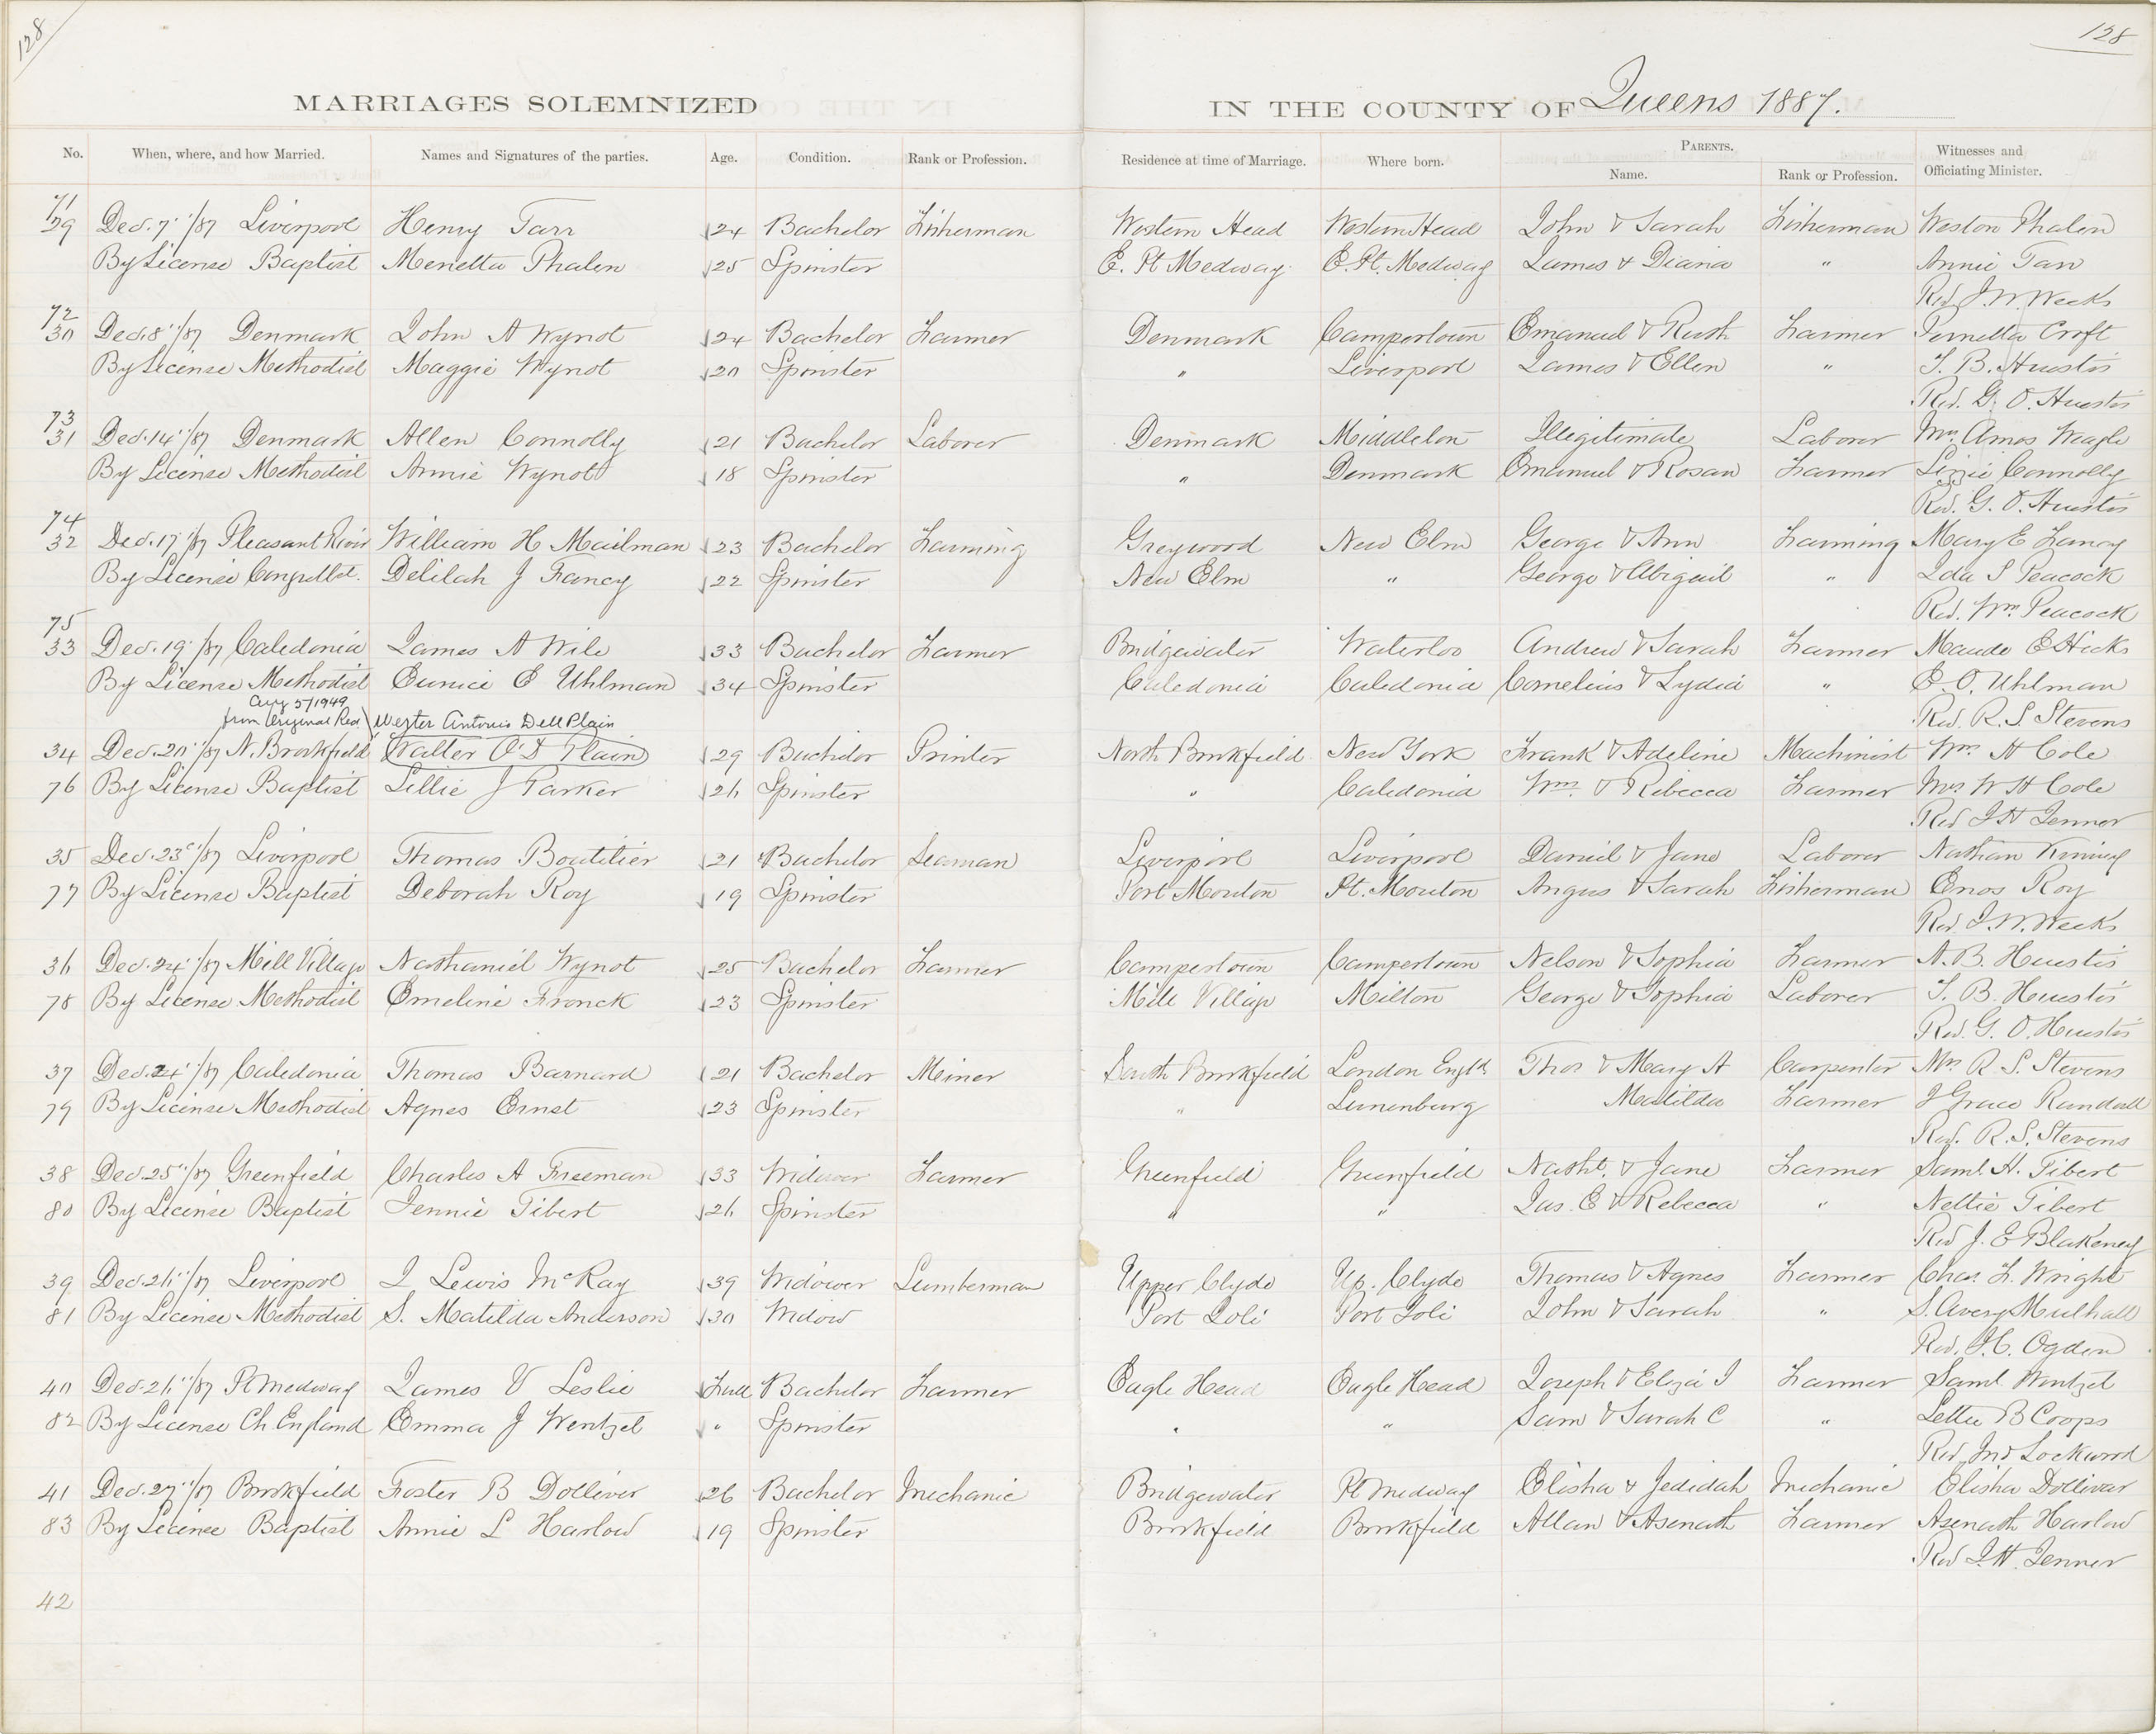 128
128
MARRIAGES SOLEMNIZED IN THE COUNTY OF Queens 1887.
No. When, where, and how Married. Names and Signatures of the parties. Age. Condition. Rank or Profession. Residence at time of Marriage. Where born. PARENTS. Name. Rank or Profession. Witnesses and Officiating Minister.
71
29 Dec. 7"/87 Liverpool Henry Tarr 24 Bachelor Fisherman Western Head Western Head John & Sarah Fisherman Weston Phalen
By License Baptist Menetta Phalen 25 Spinster E. Pt Medway E. Pt. Medway James & Diana " Annie Tarr
Rev J. W. Weeks
72
30 Dec. 8"/87 Denmark John A Wynot 24 Bachelor Farmer Denmark Campertown Emanuel & Ruth Farmer Croft
By License Methodist Maggie Wynot 20 Spinster " Liverpool James & Ellen " T. B. Huestis
Rev. G. O. Huestis
73
31 Dec. 14"/87 Denmark Allen Connolly 21 Bachelor Laborer Denmark Middleton Illegitimate Laborer Mrs Amos Weagle
By License Methodist Annie Wynot 18 Spinster " Denmark Emanuel & Rosan Farmer Lizzie Connolly
Rev. G. O. Huestis
74
32 Dec. 17"/87 Pleasant River William H Mailman 23 Bachelor Farming Greywood New Elm George & Ann Farming Mary E Fancy
By License Delilah J Fancy 22 Spinster New Elm " George & Abigail " Ida S Peacock
Rev. Wm Peacock
75
33 Dec. 19"/87 Caledonia James A Wile 33 Bachelor Farmer Bridgewater Waterloo Andrew & Sarah Farmer Maude E Hicks
By License Methodist Eunice E Uhlman 34 Spinster Caledonia Caledonia Cornelius & Lydia " E. O. Uhlman
Aug 5/1949
from Original Rec. Wester Antonio Dell Plain Rev. R. S Stevens
34 Dec. 20"/87 N. Brookfield Walter O'D Plain 29 Bachelor Printer North Brookfield New York Frank & Adeline Machinist Wm H Cole
76 By License Baptist Lillie J Parker 26 Spinster " Caledonia Wm. & Rebecca Farmer Mrs W H Cole
Rev J H Jenner
35 Dec. 23"/87 Liverpool Thomas Boutilier 21 Bachelor Seaman Liverpool Liverpool Daniel & Jane Laborer Nathan
77 By License Baptist Deborah Roy 19 Spinster Port Mouton Pt. Mouton Angus & Sarah Fisherman Enos Roy
Rev. J. W. Weeks
36 Dec. 24"/87 Mill Village Nathaniel Wynot 25 Bachelor Farmer Campertown Campertown Nelson & Sophia Farmer A. B. Huestis
78 By License Methodist Emeline Fronck 23 Spinster Mill Village Milton George & Sophia Laborer T. B. Huestis
Rev. G. O. Huestis
37 Dec. 24"/87 Caledonia Thomas Barnard 21 Bachelor Miner South Brookfield London Engld Thos & Mary A Carpenter Mrs R. S. Stevens
79 By License Methodist Agnes Ernst 23 Spinster " Lunenburg Matilda Farmer J Grace Randall
Rev. R. S. Stevens
38 Dec. 25"/87 Greenfield Charles A Freeman 33 Widower Farmer Greenfield Greenfield Nathl. & Jane Farmer Saml H. Tibert
80 By License Baptist Jennie Tibert 26 Spinster " " Jas. E & Rebecca " Nettie Tibert
Rev J. E Blakeney
39 Dec. 26"/87 Liverpool J Lewis McKay 39 Widower Lumberman Upper Clyde Up. Clyde Thomas & Agnes Farmer Chas. F. Wright
81 By License Methodist S. Matilda Anderson 30 Widow Port Joli Port Joli John & Sarah " S. Avery Mulhall
Rev. J. C. Ogden
40 Dec. 26"/87 Pt Medway James V Leslie Full Bachelor Farmer Eagle Head Eagle Head Joseph & Eliza J Farmer Saml Wentzel
82 By License Ch. England Emma J Wentzel " Spinster " " Sam & Sarah C " Lettie B Coops
Rev. Jno Lockward
41 Dec. 27"/87 Brookfield Foster B Dolliver 26 Bachelor Mechanic Bridgewater Pt Medway Elisha & Jedidah Mechanic Elisha Dolliver
83 By License Baptist Annie L Harlow 19 Spinster Brookfield Brookfield Allan & Asenath Farmer Asenath Harlow
Rev J. H. Jenner
42